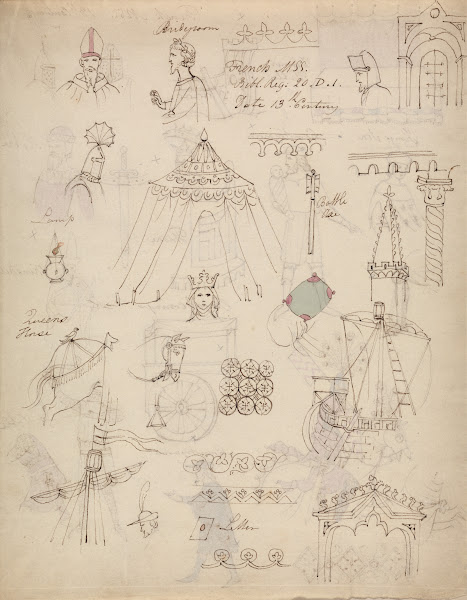 Bridegroom
French MSS.
Bibl. Reg. 20. D. 1.
Date 13th Century
Battle
Axe
Lamp
Queens
Horse
Letter